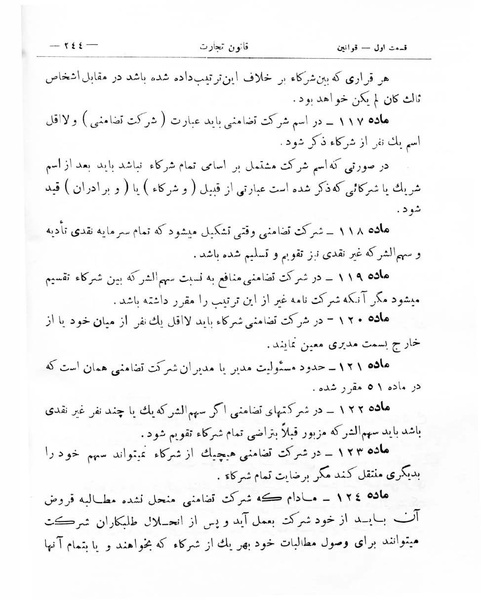 قسمت اول — قوانین قانون تجارت — ۲۴۴ —
هر قراری که بین شرکاء بر خلاف این ترتیب داده شده باشد در مقابل اشخاص
ثالث کان لم یکن خواهد بود.
ماده ۱۱۷ ـ در اسم شرکت تضامنی باید عبارت (شرکت تضامنی) ولااقل
اسم یك نفر از شرکاء ذکر شود.
در صورتی که اسم شرکت مشتمل بر اسامی تمام شرکاء نباشد باید بعد از اسم
شریك یا شرکائی که ذکر شده است عبارتی از قبیل (و شرکاء) یا (و برادران) قید
شود.
ماده ۱۱۸ ـ شرکت تضامنی وقتی تشکیل میشود که تمام سرمایه نقدی تأدیه
و سهم الشرکه غیر نقدی نیز تقویم و تسلیم شده باشد.
ماده ۱۱۹ ـ در شرکت تضامنی منافع به نسبت سهم الشرکه بین شرکاء تقسیم
میشود مگر آنکه شرکت نامه غیر از این ترتیب را مقرر داشته باشد.
ماده ۱۲۰ - در شرکت تضامنی شرکاء باید لااقل یك نفر از میان خود یا از
خارج بسمت مدیری معین نمایند.
ماده ۱۲۱ ـ حدود مسئولیت مدیر یا مدیران شرکت تضامنی همان است که
در ماده ۵۱ مقرر شده.
ماده ۱۲۲ ـ در شرکتهای تضامنی اگر سهم الشرکه یك یا چند نفر غیر نقدی
باشد باید سهم الشرکه مزبور قبلاً بتراضی تمام شرکاء تقویم شود.
ماده ۱۲۳ ـ در شرکت تضامنی هیچیك از شرکاء نمیتواند سهم خود را
بدیگری منتقل کند مگر برضایت تمام شرکاء.
ماده ۱۲٤ ـ مادام که شرکت تضامنی منحل نشده مطالبه قروض
آن باید از خود شرکت بعمل آید و پس از انحلال طلبکاران شرکت
میتوانند برای وصول مطالبات خود بهر یك از شرکاء که بخواهند و یا بتمام آنها